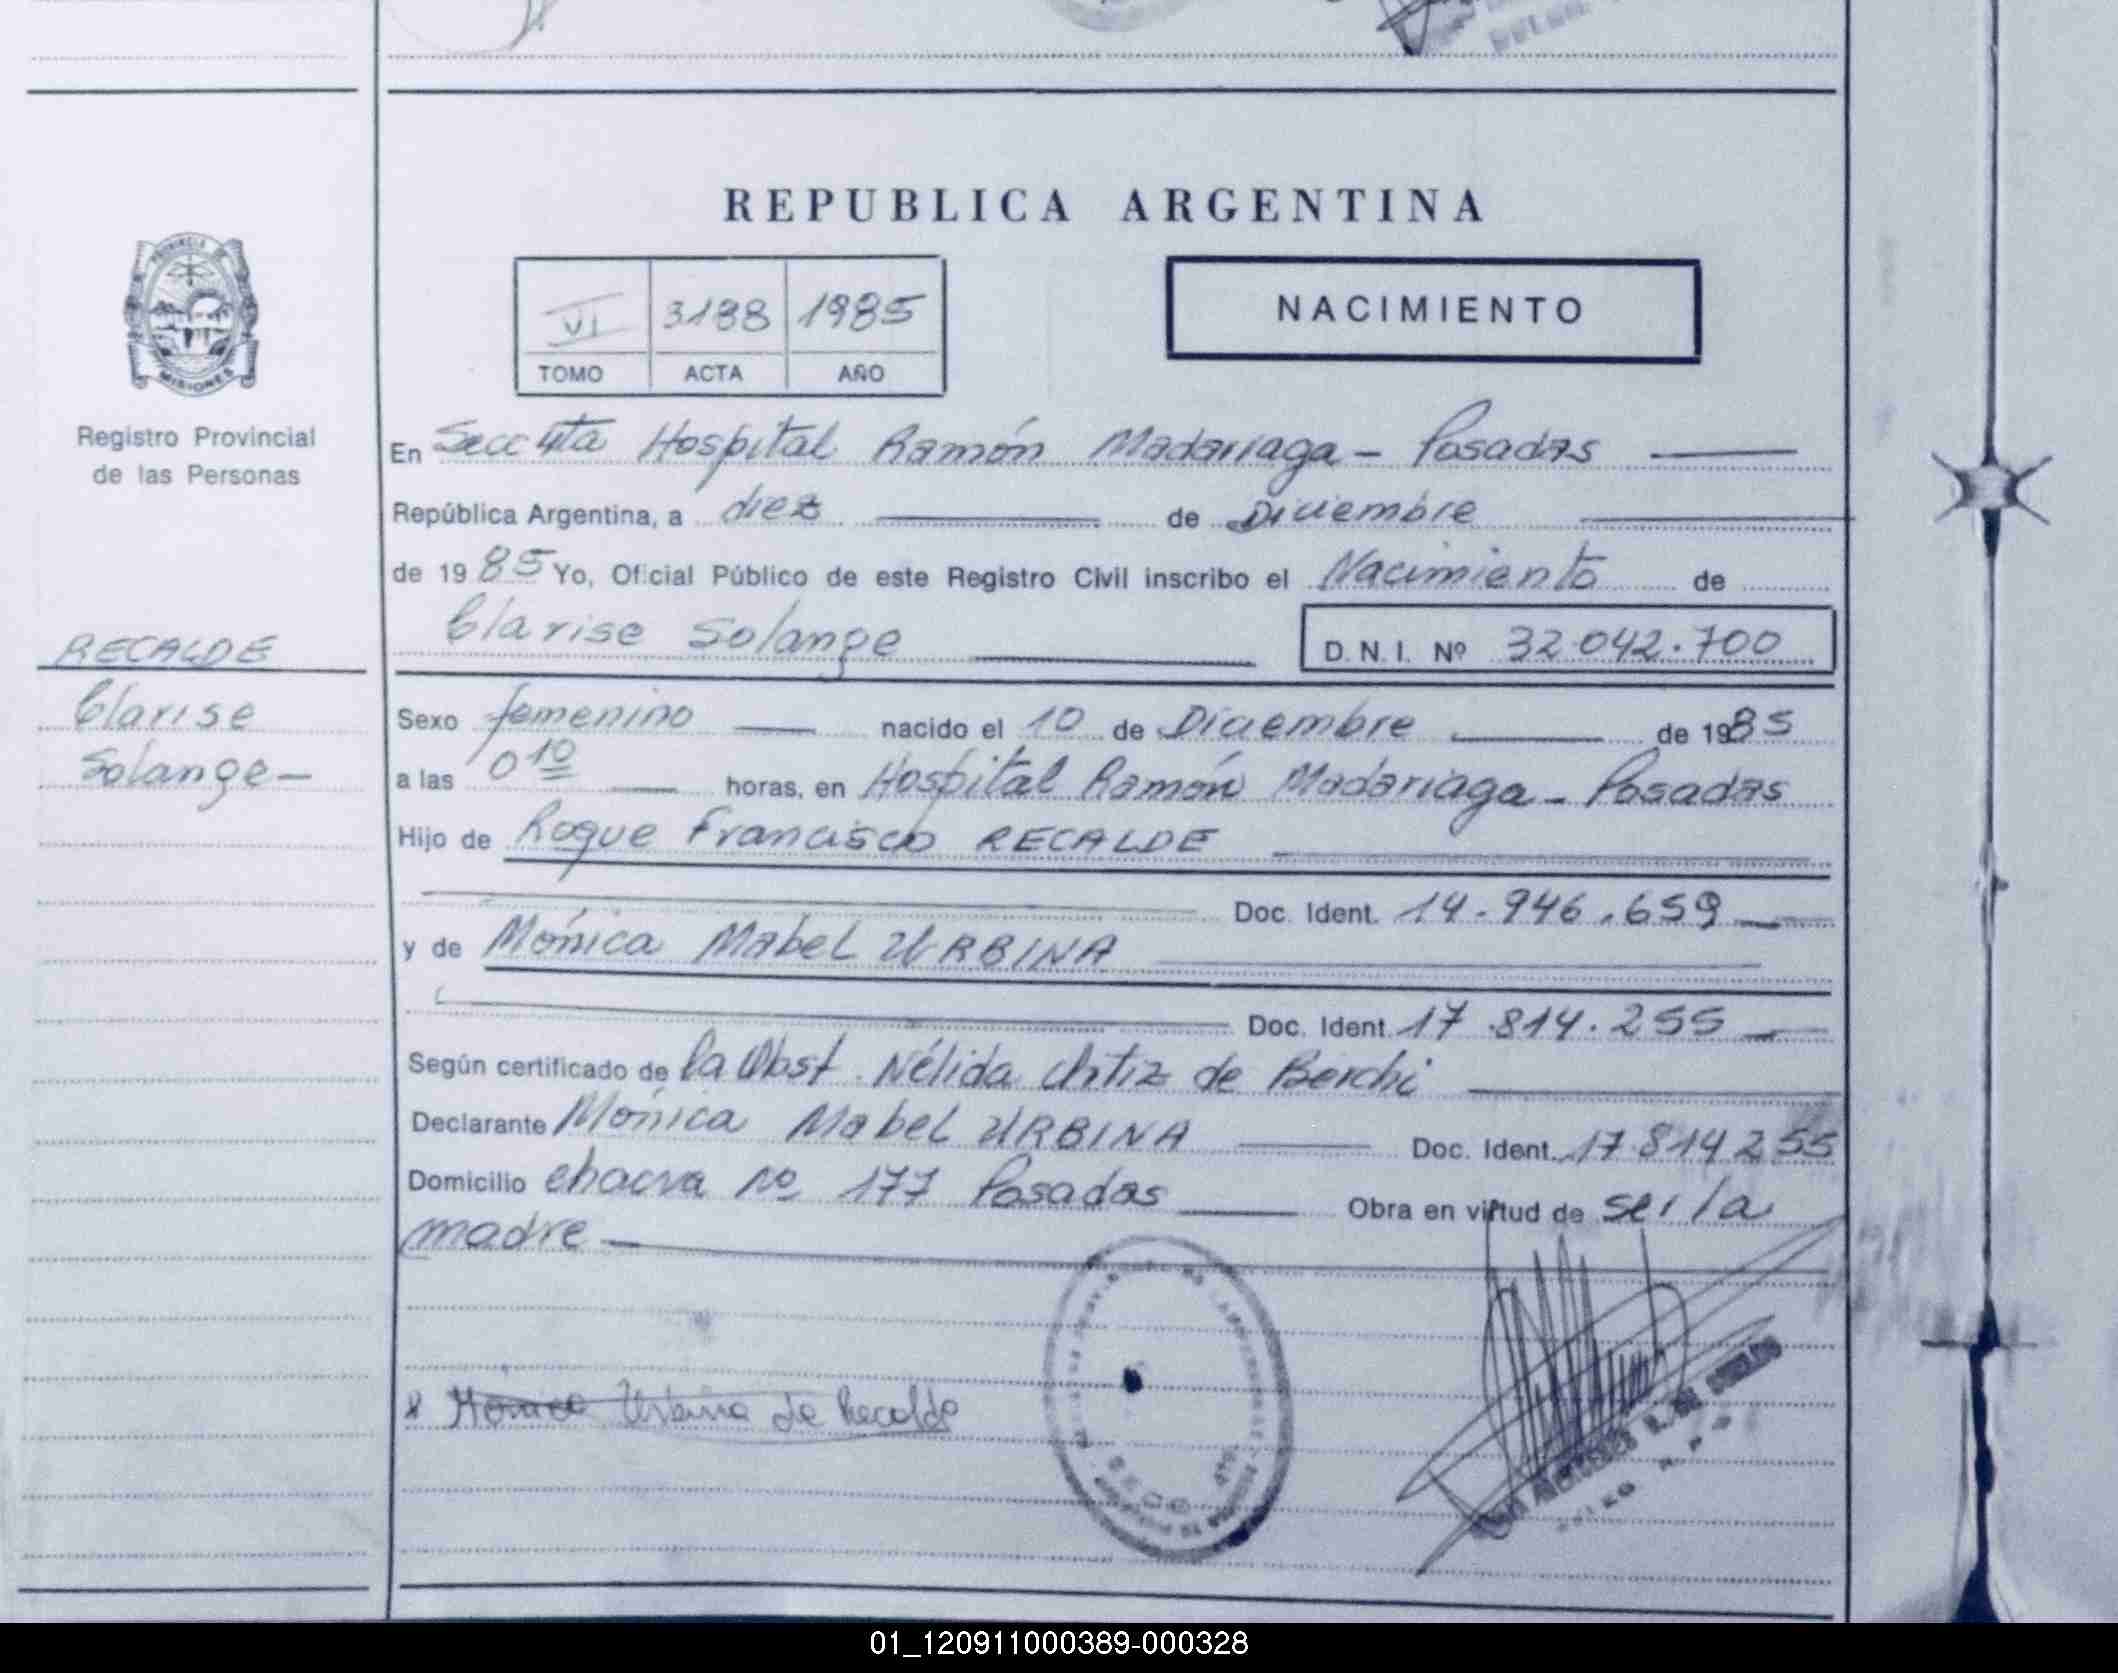 REPUBLICA ARGENTINA
VI 3188 1985
TOMO ACTA AÑO
NACIMIENTO
PROVINCIA DE
MISIONES
Registro Provincial
de las Personas
RECALDE
Clarise
Solange-
En Secc 4ta Hospital Ramón Madariaga - Posadas
República Argentina, a diez de Diciembre
de 1985 Yo, Oficial Público de este Registro Civil inscribo el Nacimiento de
Clarise Solange D.N.I. Nº 32.042.700
Sexo femenino nacido el 10 de Diciembre de 1985
a las 0 10 horas, en Hospital Ramón Madariaga - Posadas
Hijo de Roque Francisco RECALDE
Doc. Ident. 14.946.659
y de Mónica Mabel URBINA
Doc. Ident. 17.814.255
Según certificado de la Obst. Nélida Ortiz de Berchi
Declarante Mónica Mabel URBINA Doc. Ident. 17814255
Domicilio chacra nº 177 Posadas Obra en virtud de ser la
madre
Mónica Urbina de Recalde
01_120911000389-000328